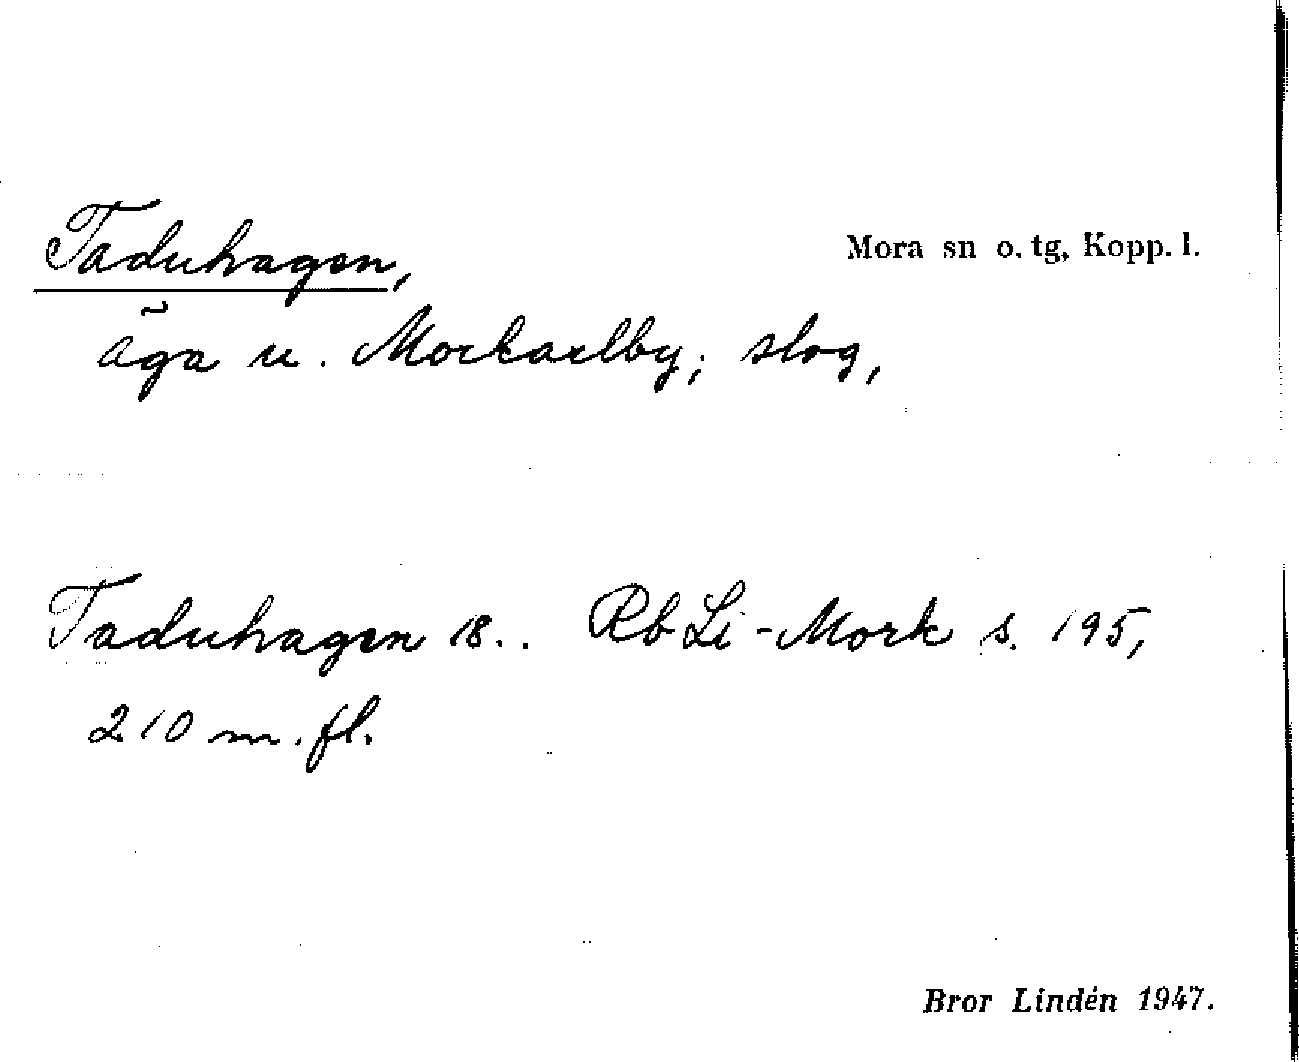 Taduhagen,
Mora sn o. tg, Kopp. l.
äga u. Morkarlby; slog,
Taduhagen 18.. Rb Li-Mork s. 195,
210 m. fl.
Bror Lindén 1947.